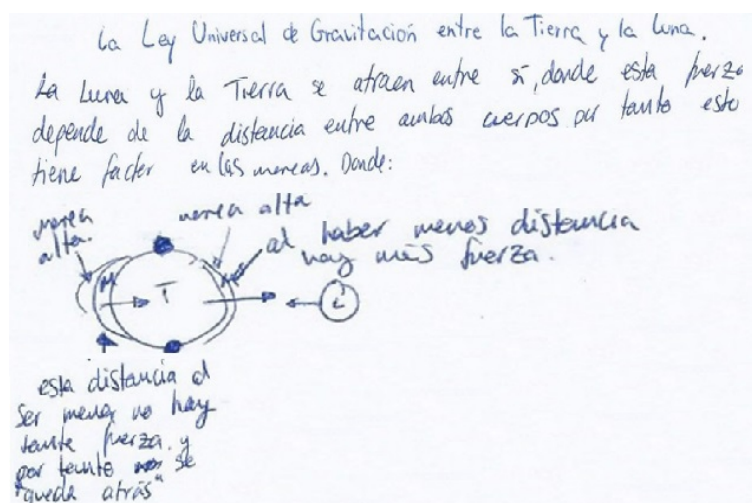 La Ley Universal de Gravitación entre la Tierra y la Luna.
La Luna y la Tierra se atraen entre sí, donde esta fuerza
depende de la distancia entre ambos cuerpos por tanto esto
tiene factor en las mareas. Donde:
marea
alta.
marea alta
al haber menos distancia
hay más fuerza.
T
L
esta distancia al
ser menor no hay
tante fuerza. y
por tanto se
"queda atrás"